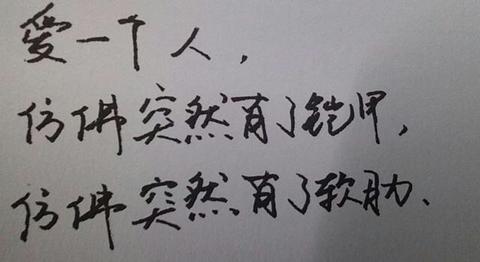 爱一个人，
仿佛突然有了铠甲，
仿佛突然有了软肋、